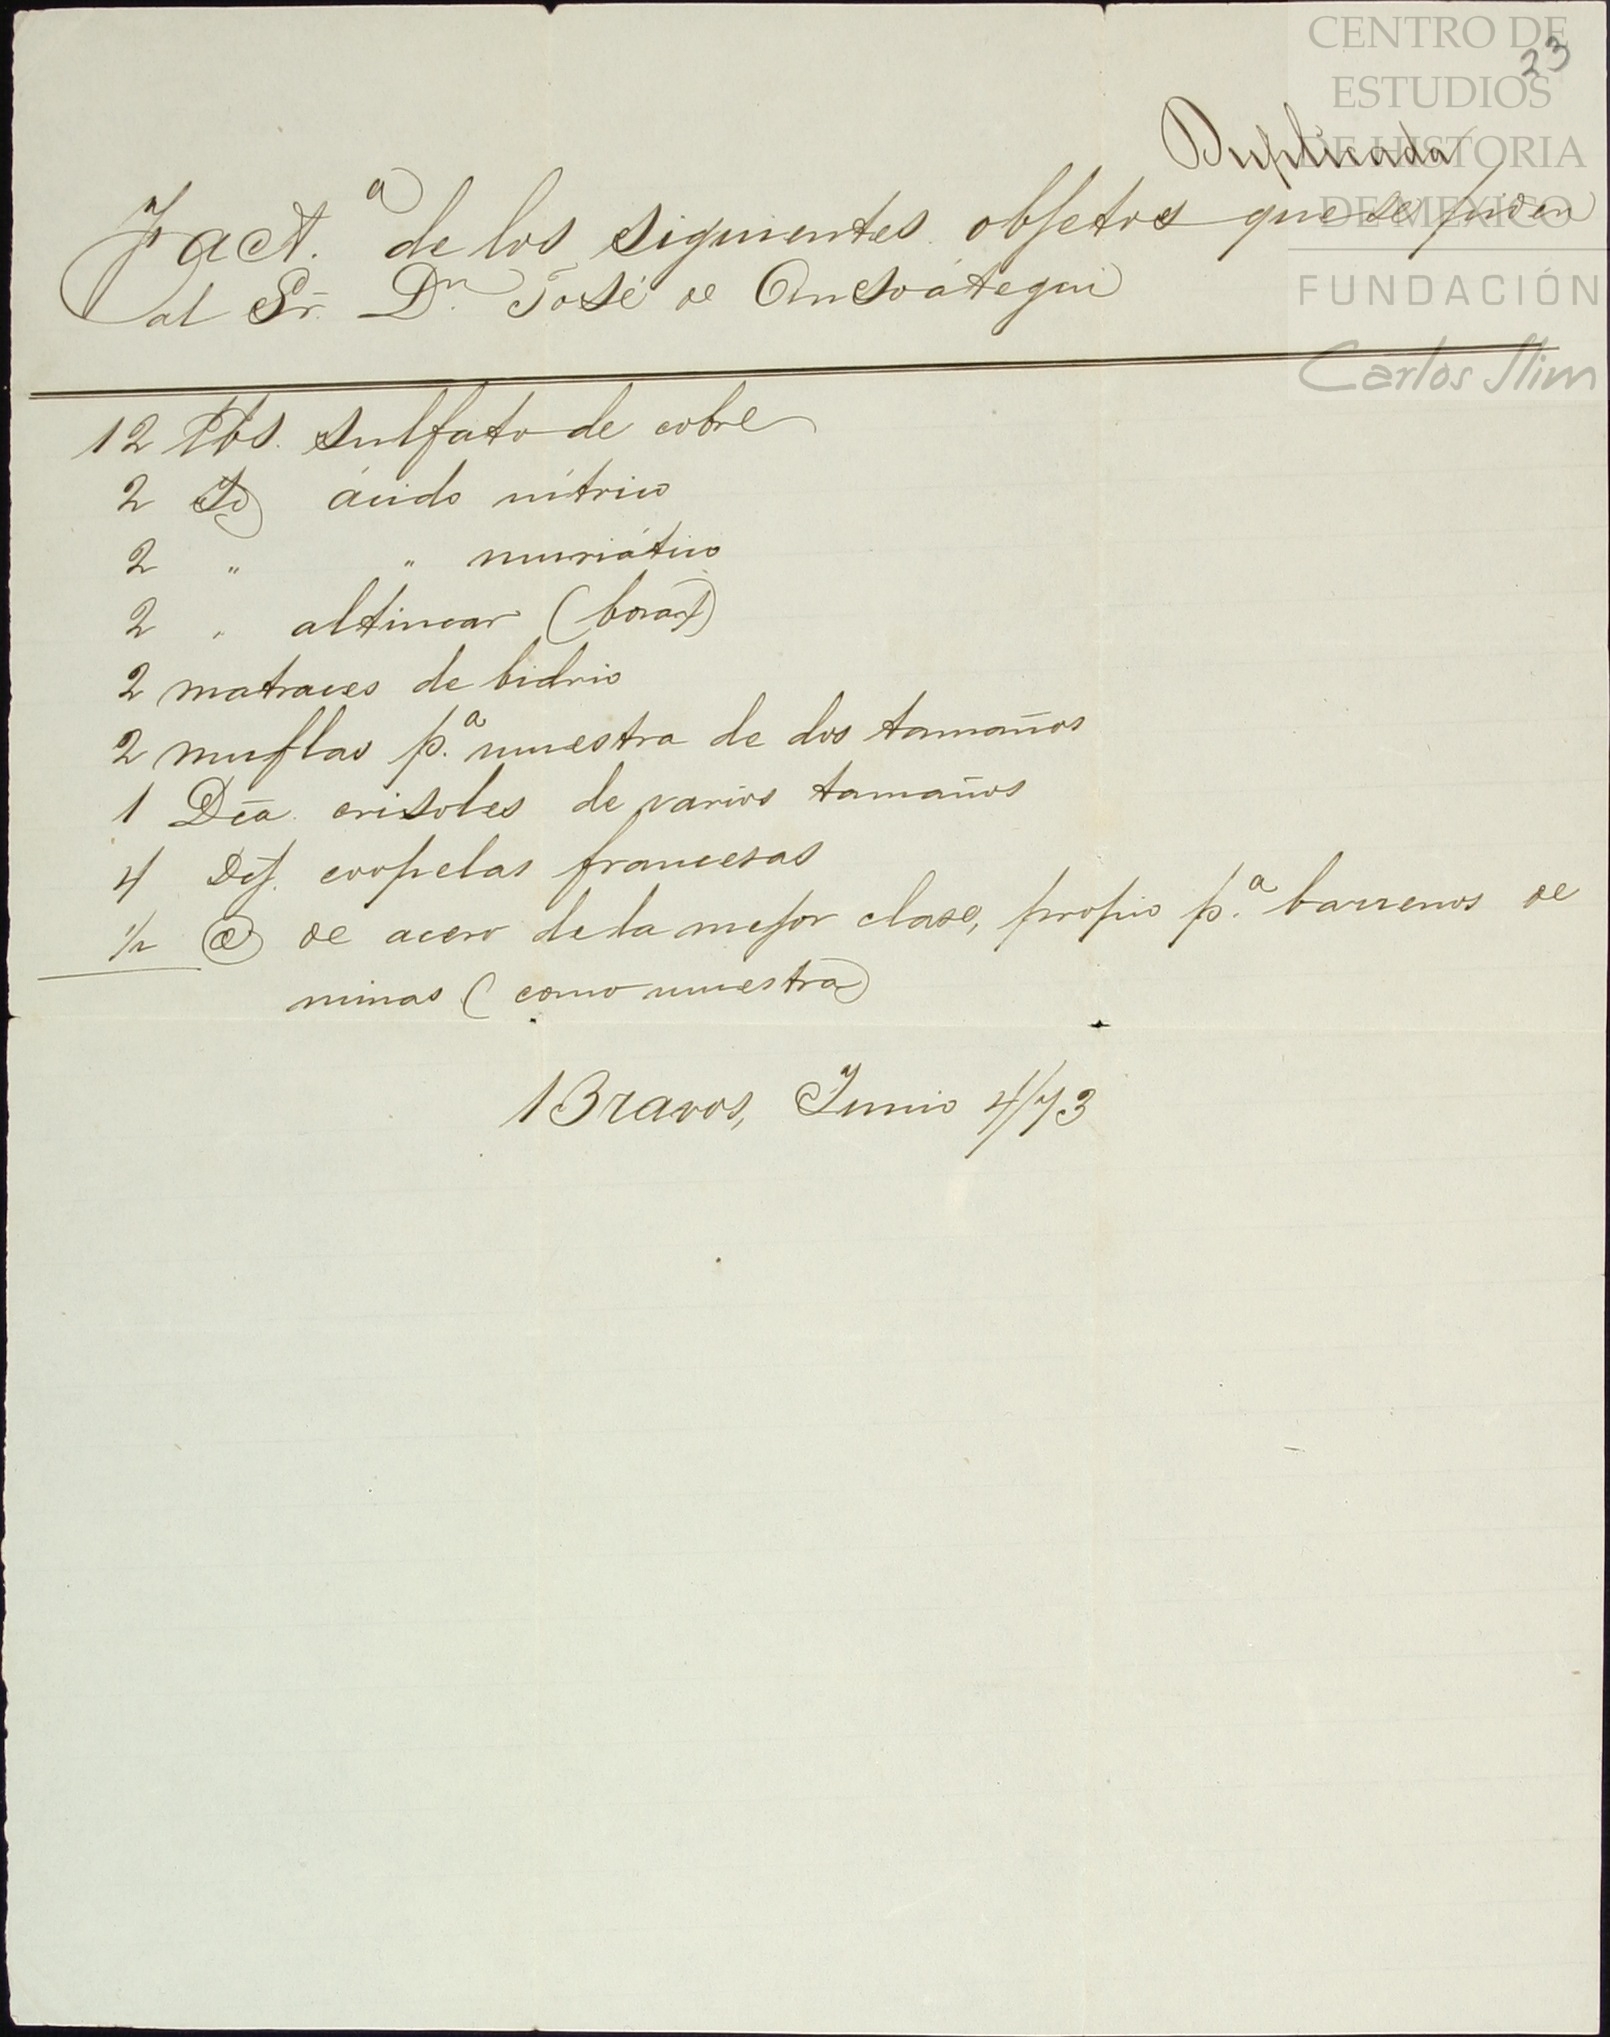 CENTRO DE
23
ESTUDIOS
DE HISTORIA
Duplicada
DE MEXICO
Fact.ª de los siguientes objetos que se piden
FUNDACIÓN
al Sr. Dn. José de Ansoátegui
Carlos Slim
12 lbs. sulfato de cobre
2 Id ácido nítrico
2 " " muriático
2 " altincar (borax)
2 matraces de bidrio
2 muflas p.ª muestra de dos tamaños
1 Dca. crisoles de varios tamaños
4 Dcs. coopelas francesas
1/2 @ de acero de la mejor clase, propio p.ª barrenos de
minas (como muestra)
Bravos, Junio 4/73